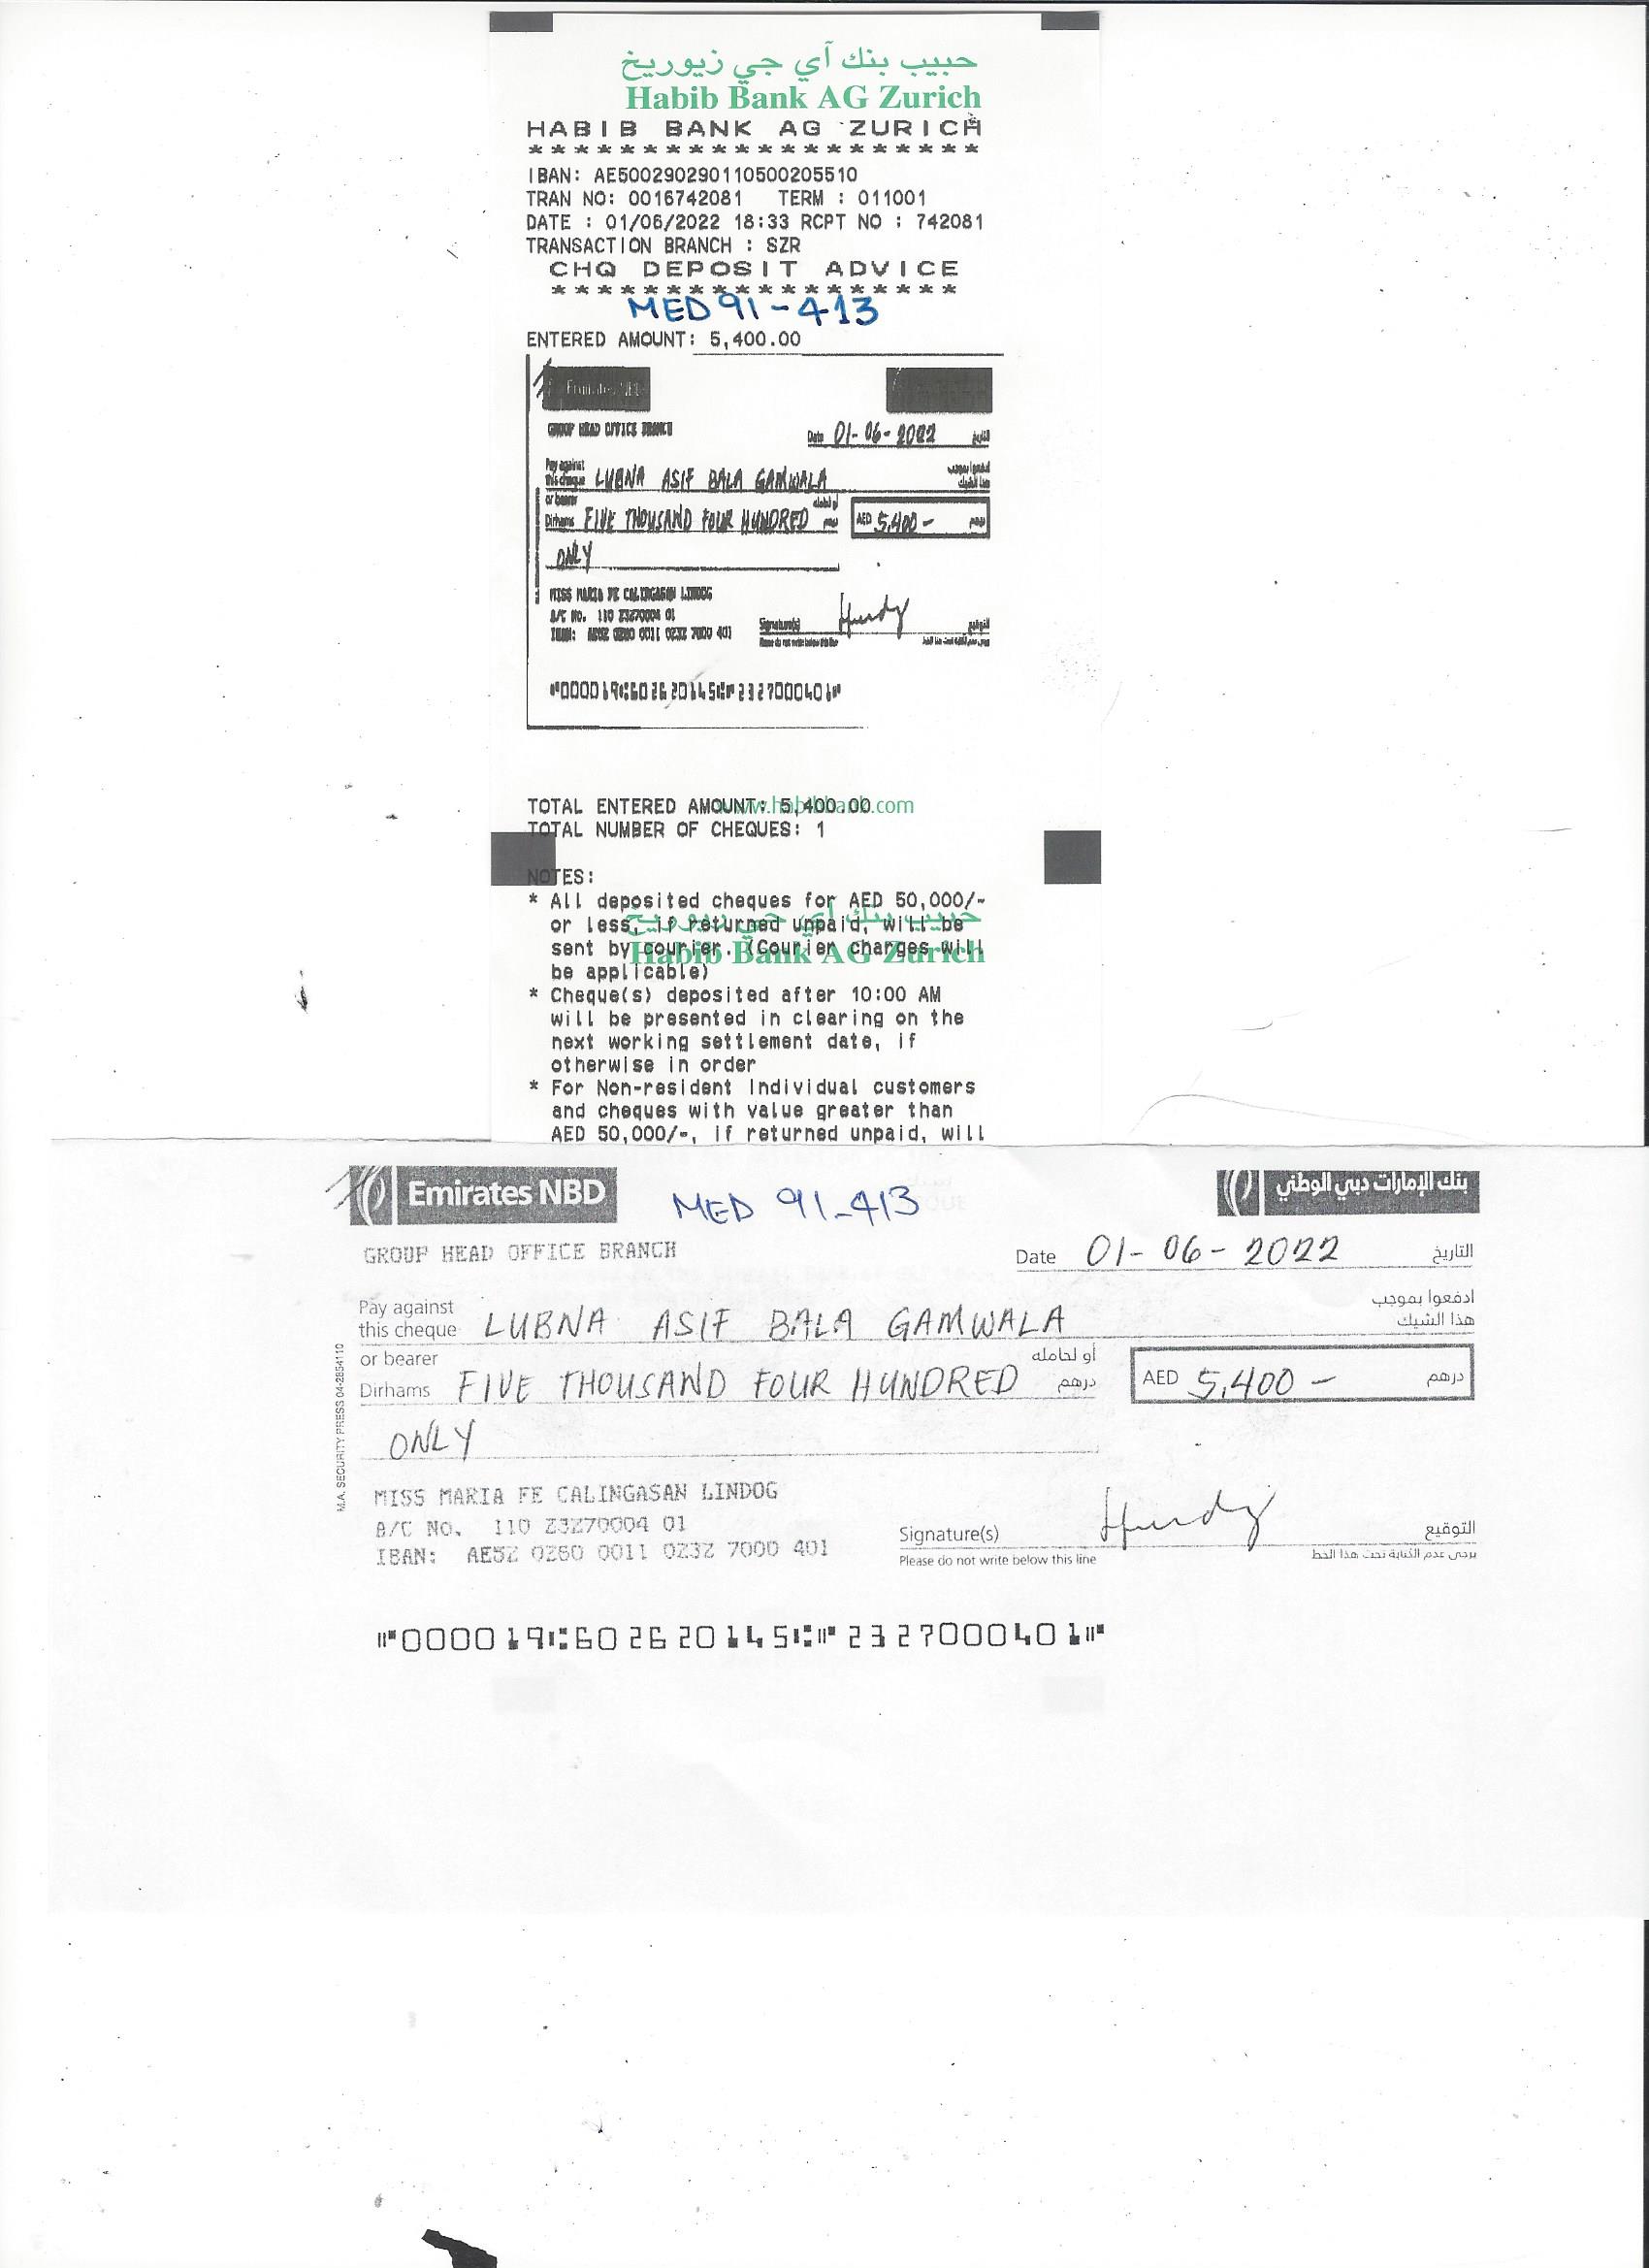 حبيب بنك آي جي زيوريخ
Habib Bank AG Zurich
HABIB BANK AG ZURICH
********************
IBAN: AE500290290110500205510
TRAN NO: 0016742081 TERM : 011001
DATE : 01/06/2022 18:33 RCPT NO : 742081
TRANSACTION BRANCH : SZR
CHQ DEPOSIT ADVICE
******************
MED 91-413
ENTERED AMOUNT: 5,400.00
Emirates NBD
GROUP HEAD OFFICE BRANCH
Date 01-06-2022 التاريخ
Pay against
this cheque LUBNA ASIF BALA GAMWALA
or bearer
Dirhams FIVE THOUSAND FOUR HUNDRED درهم AED 5,400- درهم
ONLY
MISS MARIA FE CALINGASAN LINDOG
A/C No. 110 23270004 01
IBAN: AE52 0260 0011 0232 7000 401
Signature(s) التوقيع
Please do not write below this line
⑈000019⑆602620145⑆⑈2327000401⑈
TOTAL ENTERED AMOUNT: 5,400.00
www.habibbank.com
TOTAL NUMBER OF CHEQUES: 1
NOTES:
* All deposited cheques for AED 50,000/-
or less, if returned unpaid, will be
sent by courier. (Courier charges will
be applicable)
حبيب بنك آي جي زيوريخ
Habib Bank AG Zurich
* Cheque(s) deposited after 10:00 AM
will be presented in clearing on the
next working settlement date, if
otherwise in order
* For Non-resident Individual customers
and cheques with value greater than
AED 50,000/-, if returned unpaid, will
Emirates NBD
MED 91-413
بنك الإمارات دبي الوطني
GROUP HEAD OFFICE BRANCH
Date 01-06-2022 التاريخ
Pay against ادفعوا بموجب
this cheque LUBNA ASIF BALA GAMWALA هذا الشيك
or bearer أو لحامله
Dirhams FIVE THOUSAND FOUR HUNDRED درهم AED 5,400 - درهم
ONLY
M.A. SECURITY PRESS 04-2854110
MISS MARIA FE CALINGASAN LINDOG
A/C NO. 110 23270004 01
IBAN: AE52 0260 0011 0232 7000 401
Signature(s) التوقيع
Please do not write below this line يرجى عدم الكتابة تحت هذا الخط
⑈000019⑆602620145⑆⑈2327000401⑈